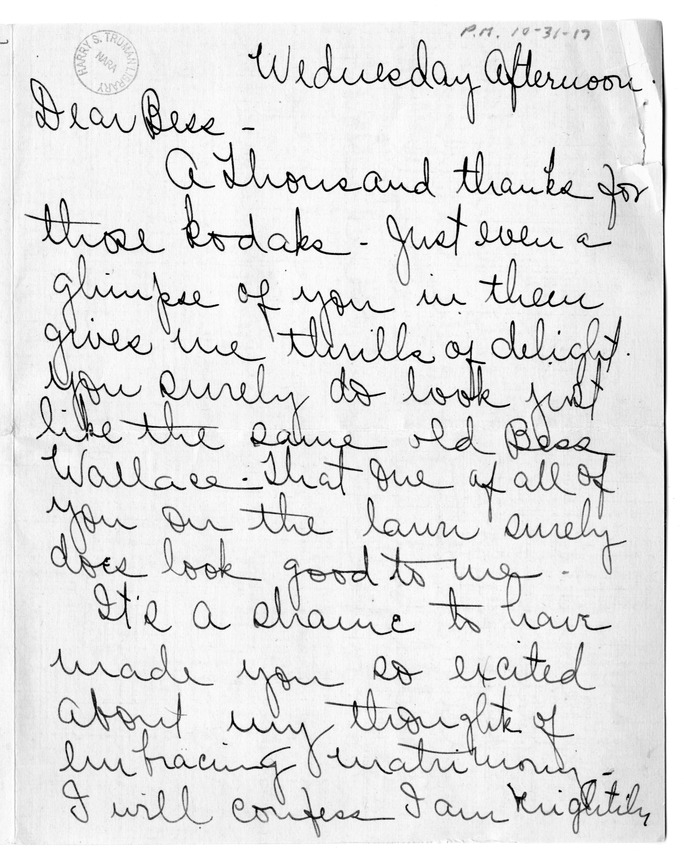 P.M. 10-31-17
HARRY S. TRUMAN LIBRARY
NARA
Wednesday Afternoon.
Dear Bess -
A thousand thanks for
those kodaks - Just even a
glimpse of you in them
gives me thrills of delight.
You surely do look just
like the same old Bess
Wallace. That one of all of
you on the lawn surely
does look good to me -
It's a shame to have
made you so excited
about my thoughts of
embracing matrimony -
I will confess I am mightily